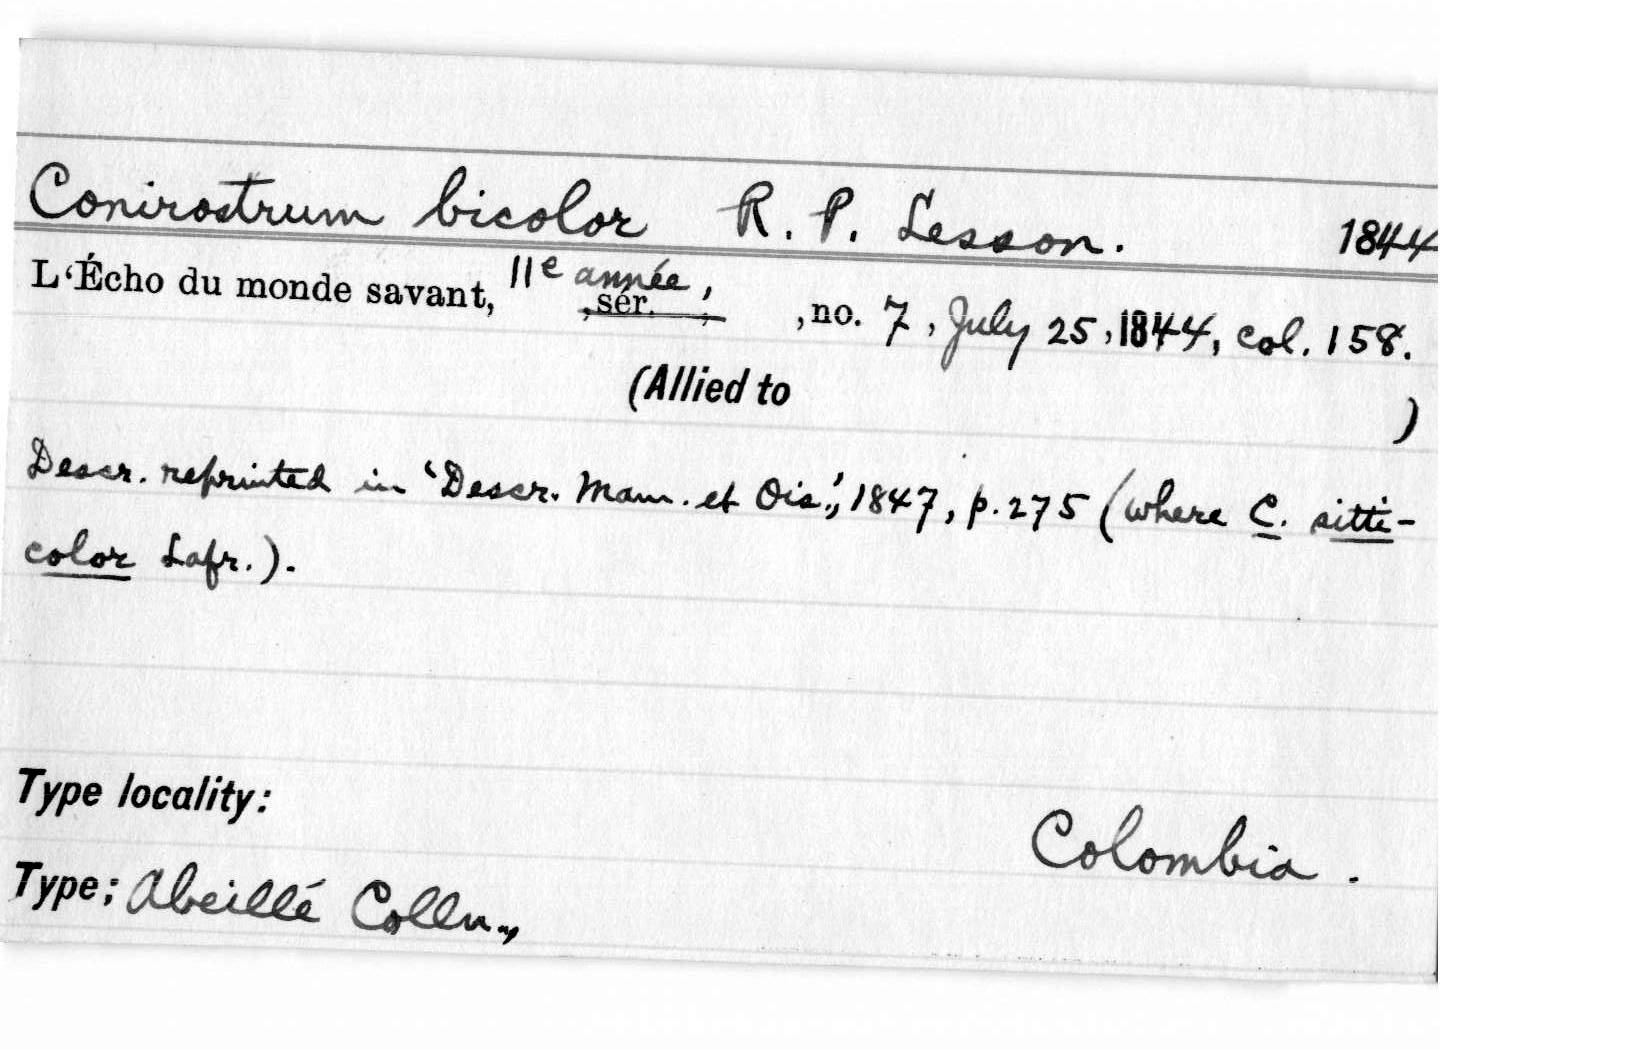 Conirostrum bicolor R. P. Lesson. 1844
L'Écho du monde savant, 11e année, ,sér. , ,no. 7, July 25, 1844, col. 158.
(Allied to )
Descr. reprinted in 'Descr. Mam. et Ois.', 1847, p. 275 (where C. sitti-
color Lafr.).
Type locality:
Colombia.
Type; Abeillé Colln.,